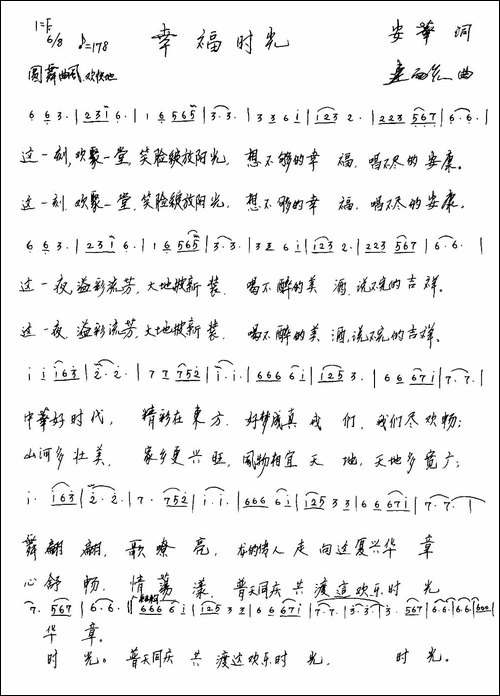 1=F
6/8 ♪=178 幸福时光 安華 词
圆舞曲风 欢快地 曲
6 6 3· | 2 3 i 6· | 1 6 5 6 5 | 3· 3· | 3 3 6 i | i 2 3 2· | 2 2 3 5 6 7 | 6· 6· |
这一刻,欢聚一堂,笑脸绽放阳光,想不够的幸福,喝不尽的安康。
这一刻,欢聚一堂,笑脸绽放阳光,想不够的幸福,喝不尽的安康。
6 6 3· | 2 3 i 6· | 1 6 5 6 5 | 3· 3· | 3 3 6 i | i 2 3 2· | 2 2 3 5 6 7 | 6· 6· |
这一夜,溢彩流芳,大地披新装,喝不醉的美酒,说不完的吉祥。
这一夜,溢彩流芳,大地披新装,喝不醉的美酒,说不完的吉祥。
i i i 6 3 | 2· 2· | 7 7 7 5 2 | i· i· | 6 6 6 6 i | i 2 5 3· | 6 6 6 7 i | 7· 7· |
中華好时代,精彩在東方,好梦成真我们,我们尽欢畅;
山河多壮美,家乡更兴旺,風物相宜天地,天地多宽广;
i· i 6 3 | 2· 2· | 7· 7 5 2 | i· i· | 6 6 6 6 i | i 2 5 3 3 | 6 6 6 7 i | 7· 7· |
舞翩翩,歌嘹亮,龙的传人走向这复兴华章
心舒畅,情荡漾,普天同庆共渡這欢乐时光
7· 5 6 7 | 6· 6· | 6 6 6 6 i | i 2 5 3 3 | 6 6 6 7 i | 7· 7· | 3· 3· | 3· 5 6 7 | 6· 6· | 6· 6· | 6 0 0 |
华章。
时光。普天同庆共渡这欢乐时光,时光。